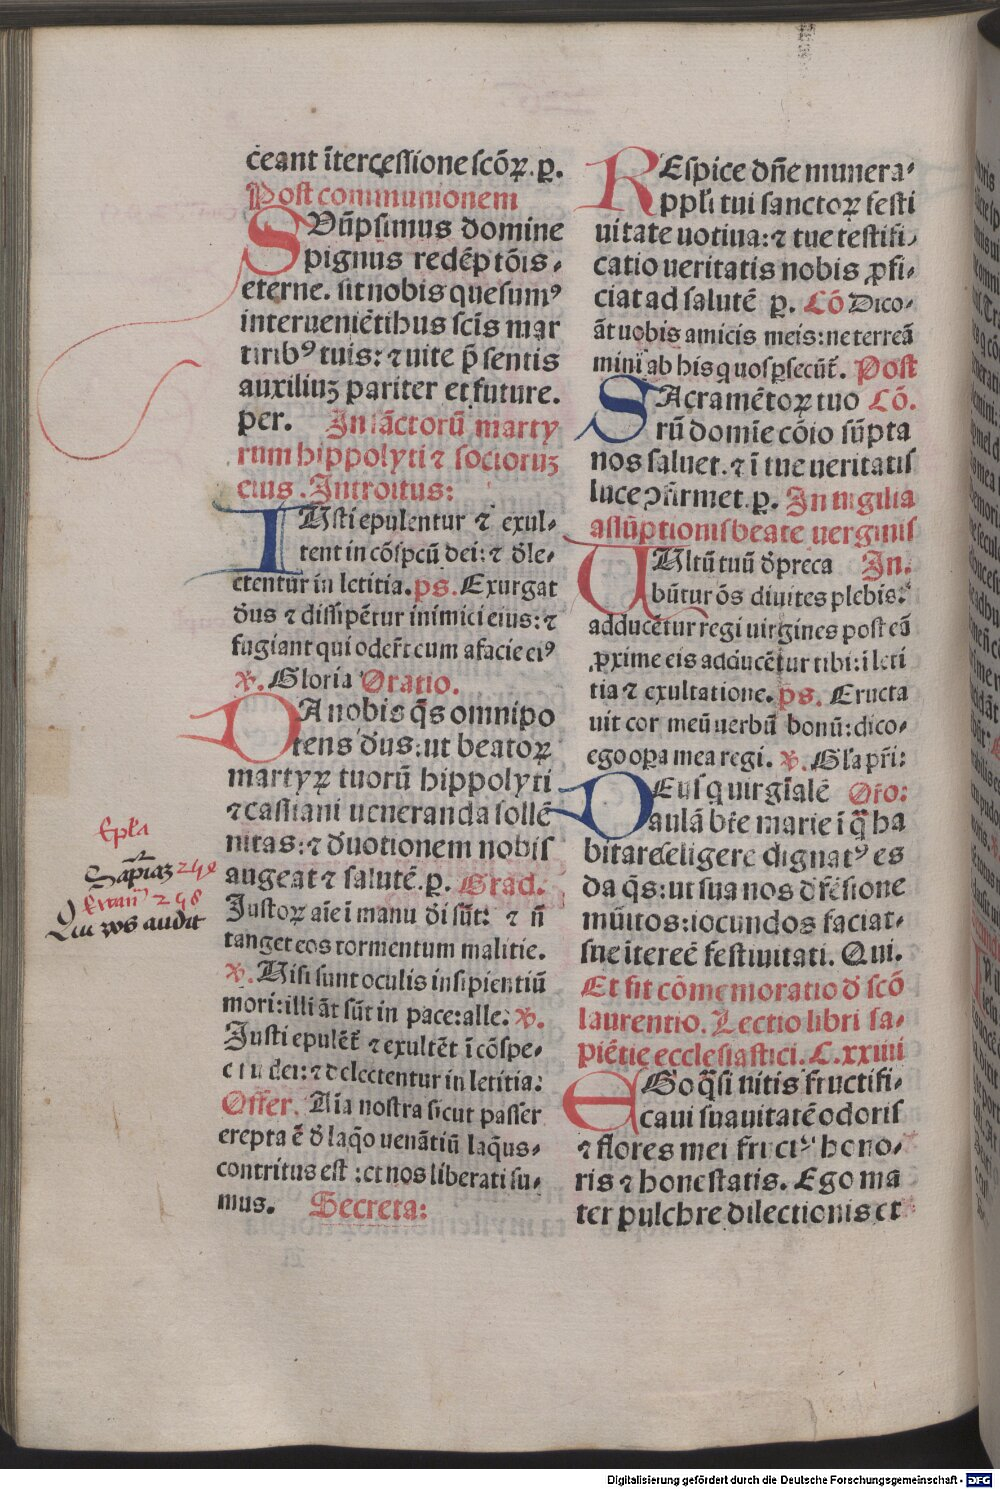 ceant īterceſſione ſcōꝝ. ꝑ.
Post communionem
SVūpsimus domine
pignus redēptōis,
eterne. ſit nobis queſumꝰ
interueniētibus ſcīs mar
tiribꝰ tuis: ⁊ uite p̄ſentis
auxiliuꝫ pariter et future.
per. In ſāctorū marty
rum hippolyti ⁊ ſocioruꝫ
eius. Introitus:
IVſti epulentur ⁊ exul,
tent in cōſpcū dei: ⁊ d̄le,
ctentur in letitia. ps. Exurgat
d̄us ⁊ diſſipētur inimici eius: ⁊
fugiant qui oder̄t eum a facie eiꝰ
℣. Gloria Oratio.
DA nobis q̄s omnipo
tens d̄us: ut beatoꝝ
martyꝝ tuorū hippolyti
⁊ caſſiani ueneranda ſollē
nitas: ⁊ d̄uotionem nobiſ
augeat ⁊ ſalutē. ꝑ. Grad.
Juſtoꝝ aīe ī manu d̄i ſūt: ⁊ n̄
tanget eos tormentum malitie.
℣. Viſi ſunt oculis inſipientiū
mori: illi āt ſūt in pace: alle: ℣.
Juſti epulēt̄ ⁊ exultēt ī cōſpe,
ctu dei: ⁊ delectentur in letitia:
Offer. Aīa noſtra ſicut paſſer
erepta ē d̄ laq̄o uenātiū laq̄us,
contritus eſt: et nos liberati ſu,
mus. Secreta:
Epl̄a
Sapiaꝫ 240
Ewan 258
Qui vos audit
REſpice dn̄e munera,
ppl̄i tui ſanctoꝝ feſti
uitate uotiua: ⁊ tue teſtifi,
catio ueritatis nobis ꝓfi,
ciat ad ſalutē ꝑ. Cō Dico,
āt uobis amicis meis: ne terreā
mini ab his q uos ꝑſecūt̄. Poſt
SAcramētoꝝ tuo Cō.
rū domīe cōīo ſūpta
nos ſaluet. ⁊ ī tue ueritatiſ
luce ꝯfirmet. ꝑ. In uigilia
aſſūptionis beate uerginis
VVltū tuū d̄preca In.
būtur ōs diuites plebis:
adducētur regi uirgines poſt eā
ꝓxime eis adducētur tibi: ī leti
tia ⁊ exultatione. ps. Eructa
uit cor meū uerbū bonū: dico,
ego oꝑa mea regi. ℣. Gl̄a pr̄i:
DEuſ q uirgīalē Oro:
aulā bt̄e marie ī q̄ ha
bitare eligere dignatꝰ es
da q̄s: ut ſua nos d̄fēſione
mūitos: iocundos faciat,
ſue ītereē feſtiuitati. Qui.
Et fit cōmemoratio d̄ ſcō
laurentio. Lectio libri ſa,
piētie eccleſiaſtici. C. xxiiii
EGo q̄ſi uitis fructifi,
caui ſuauitatē odoriſ
⁊ flores mei fructꝰ hono,
ris ⁊ honeſtatis. Ego ma
ter pulchre dilectionis et
Digitalisierung gefördert durch die Deutsche Forschungsgemeinschaft - DFG